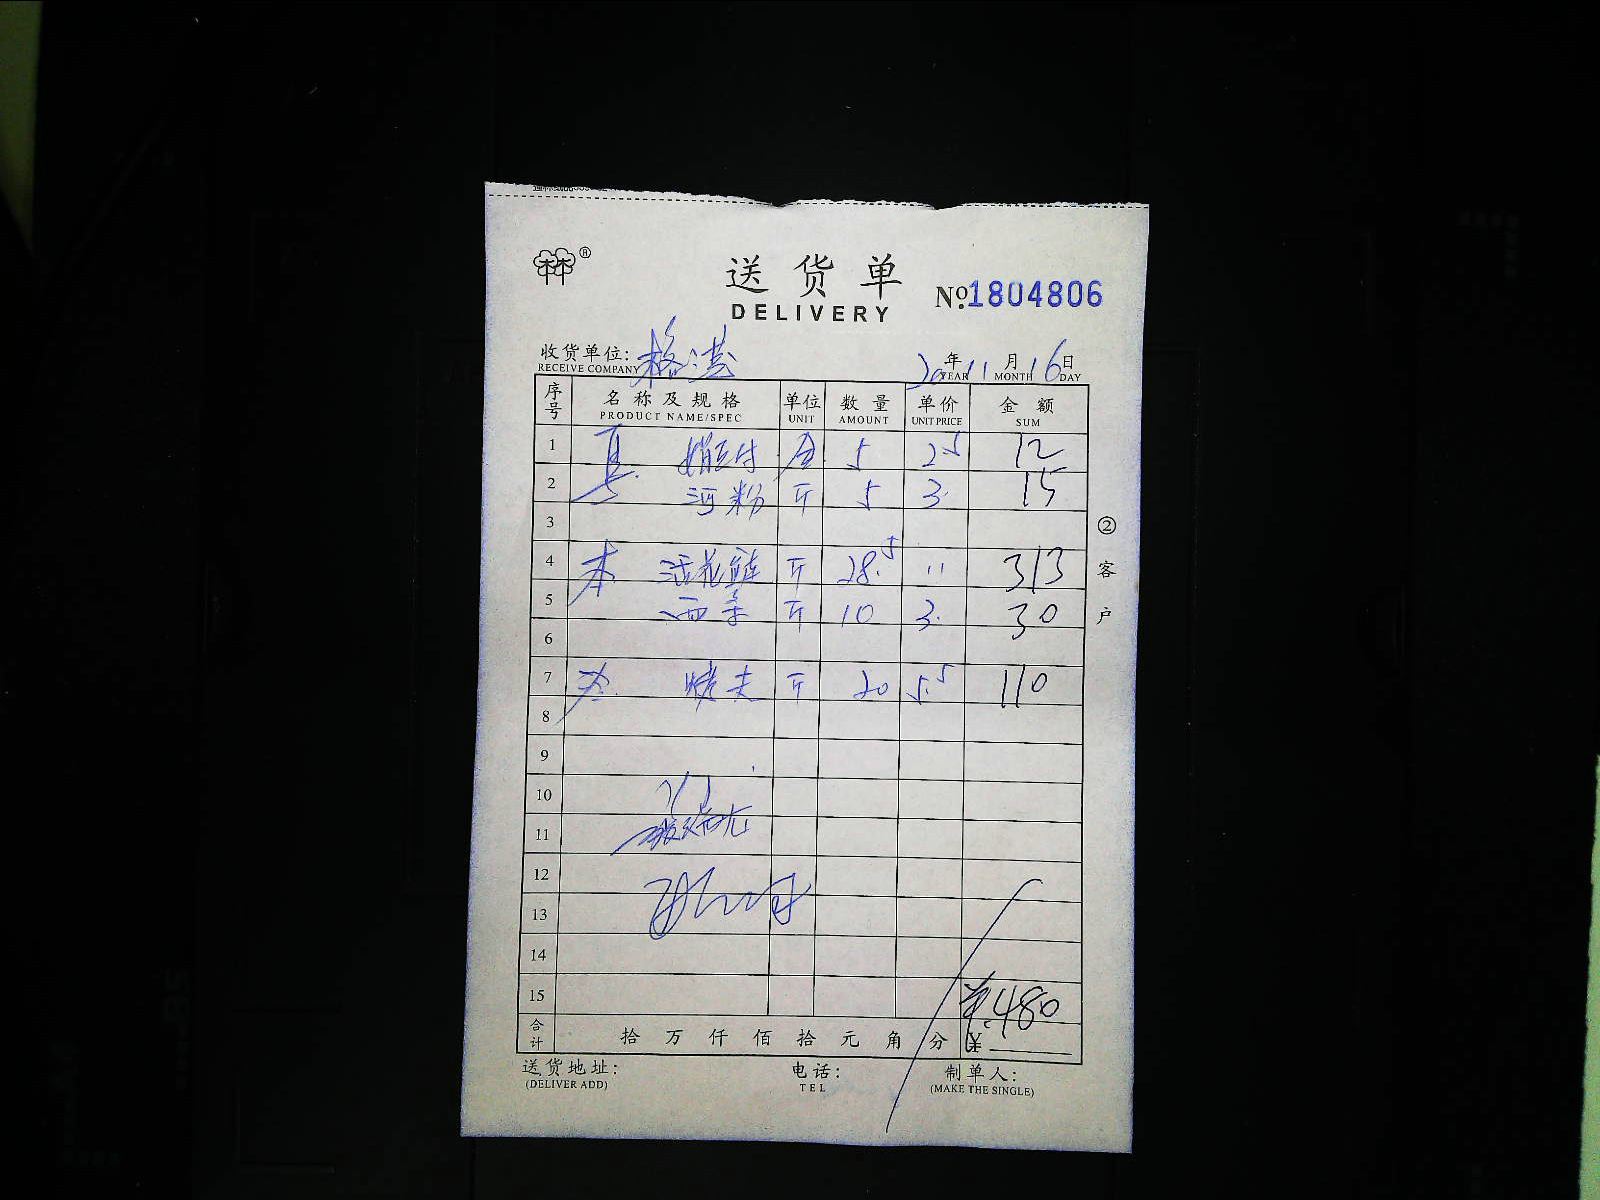 送货单
DELIVERY
№ 1804806
收货单位:
RECEIVE COMPANY
20年11月16日
YEAR MONTH DAY
序号 名称及规格 单位 数量 单价 金额
PRODUCT NAME/SPEC UNIT AMOUNT UNIT PRICE SUM
1 5 2.5 12
2 河粉 斤 5 3. 15
3
4 本 活花鲢 斤 28.5 11 313
5 西芹 斤 10 3. 30
6
7 烤夫 斤 20 5.5 110
8
9
10
11
12
13
14
15 ¥480
合计 拾万仟佰拾元角分 ¥
②客户
送货地址: 电话: 制单人:
(DELIVER ADD) TEL (MAKE THE SINGLE)